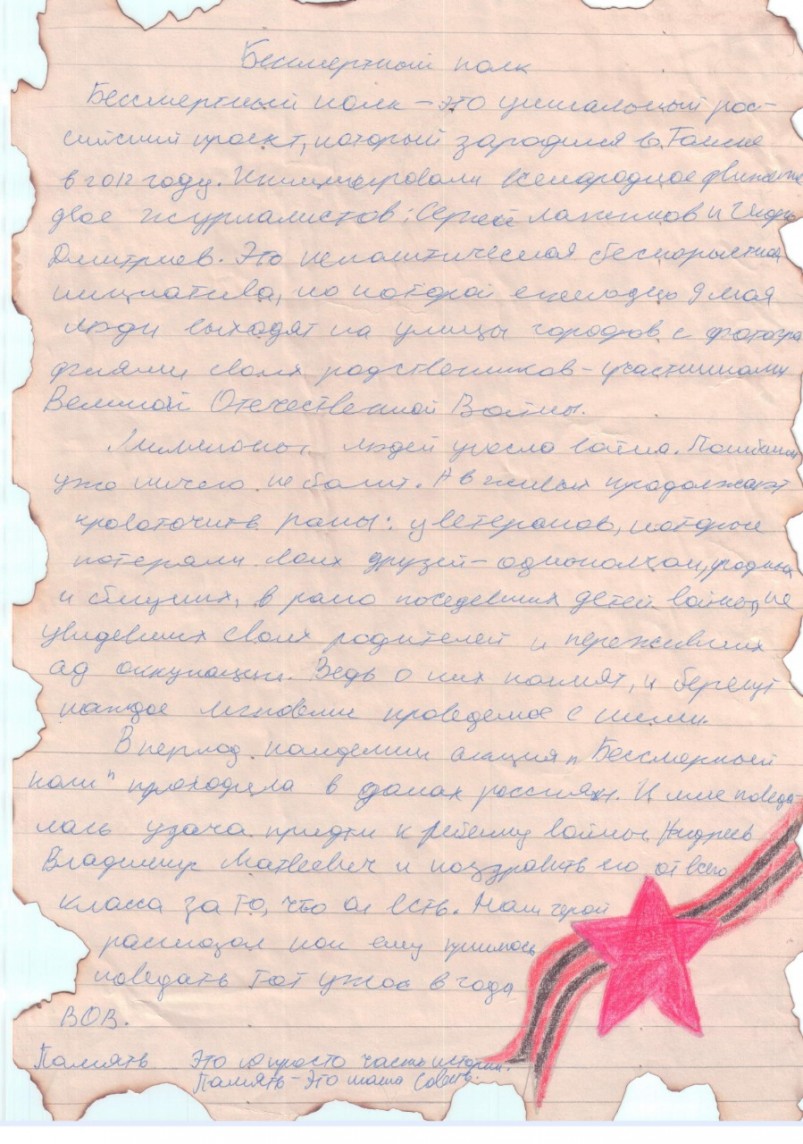 Бессмертный полк
Бессмертный полк – это уникальный рос-
сийский проект, который зародился в г. Томске
в 2012 году. Инициировали всенародное движение
двое журналистов: Сергей Лапенков и Игорь
Дмитриев. Это неполитическая бескорыстная
инициатива, по которой ежегодно 9 мая
люди выходят на улицы городов с фотогра
фиями своих родственников – участниками
Великой Отечественной Войны.
Миллионы людей унесла война. Погибшим
уже ничего не болит. А в живых продолжают
кровоточить раны: у ветеранов, которые
потеряли своих друзей – однополчан, родных
и близких, в рано поседевших детей войны, не
увидевших своих родителей и переживших
ад оккупации. Ведь о них помнят, и берегут
каждое мгновение проведенное с ними.
В период пандемии акция „Бессмертный
полк" проходила в домах россиян. И мне
удача придти к ребенку войны Андреев
Владимир Матвеевич и поздравить его от всего
класса за то, что он есть. Наш герой
рассказал как ему пришлось
поведать тот ужас в года
ВОВ.
Память Это не просто часть истории.
Память – Это наша Совесть.